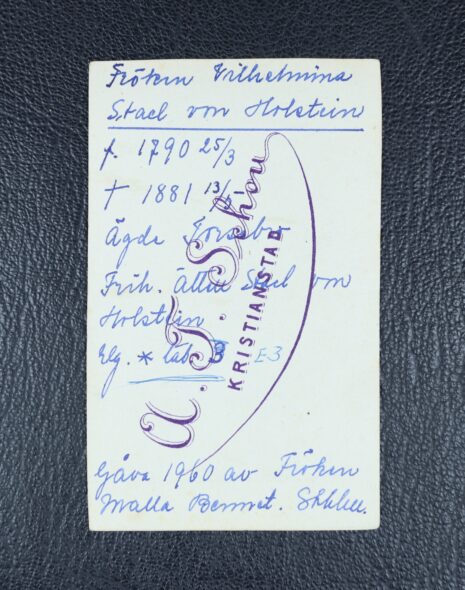 Fröken Vilhelmina
Stael von Holstein
f. 1790 25/3
† 1881 13/5
Ägde Forsebro
Frih. ätten Stael von
Holstein
Elg. * tab. 3 E3
Gåva 1960 av Fröken
Malla Bennet.
A. F. Schou
KRISTIANSTAD